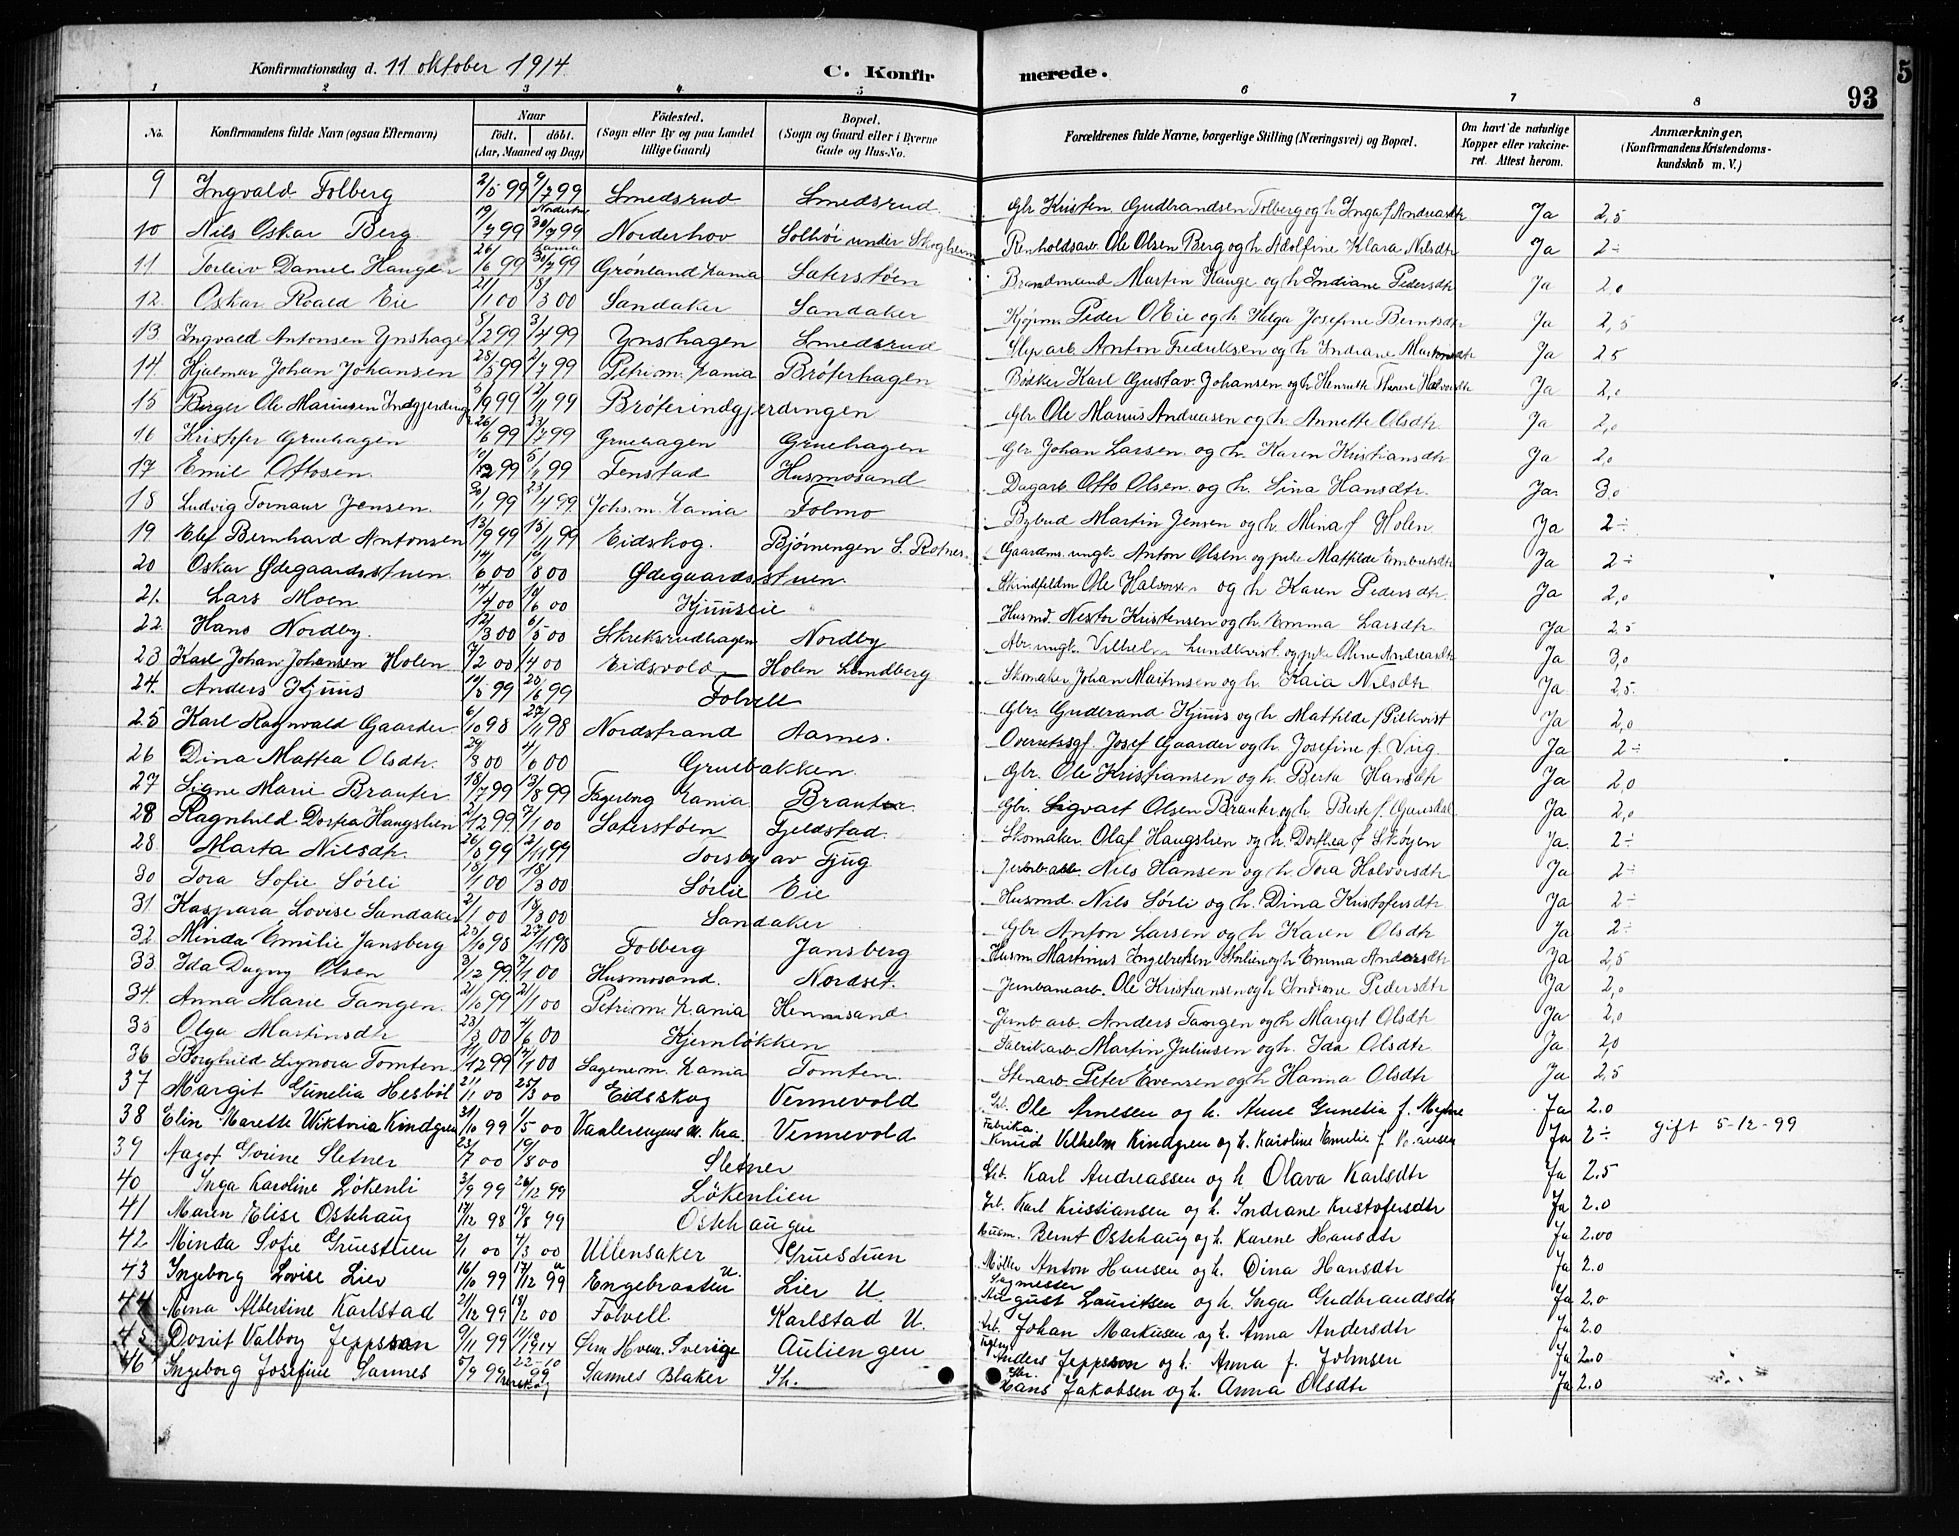 Konfirmationsdag d. 11 oktober 1914. C. Konfirmerede. 93
1 2 3 4 5 6 7 8
No. Konfirmandens fulde Navn (ogsaa Efternavn) Naar født. døbt. (Aar, Maaned og Dag) Fødested. (Sogn eller By og paa Landet tillige Gaard) Bopæl. (Sogn og Gaard eller i Byerne Gade og Hus-No. Forældrenes fulde Navne, borgerlige Stilling (Næringsvei) og Bopæl. Om havt de naturlige Kopper eller vakcineret. Attest herom. Anmærkninger, (Konfirmandens Kristendomskundskab m. V.)
9 Ingvald Folberg 2/5 99 9/7 99 Smedsrud Smedsrud Gbr Kristen Gudbrandsen Folberg og h Inga f Andreasdtr Ja 2,5
10 Nils Oskar Berg 19/7 99 30/7 99 Norderhov Solhöi under Skogheim Renholdsarb. Ole Olsen Berg og h Adolfine Klara Nilsdtr Ja 2÷
11 Torleiv Daniel Haugen 26/6 99 30/7 99 Grönland Kania Sæterstøen Brandmand Martin Hauge og h Indiane Pedersdtr Ja 2,0
12 Oskar Roald Eie 21/1 00 18/3 00 Sandaker Sandaker Kjörm. Peder O Eie og h Helga Josefine Berntsdtr Ja 2,5
13 Ingvald Antonsen Ynshagen 5/2 99 3/4 99 Ynshagen Smedsrud Slip arb. Anton Fredriksen og h Indiane Martinsdtr Ja 2 5
14. Hjalmar Johan Johansen 28/5 99 2/7 99 Petri m. Kania Bröterhagen Bödker Karl Gustav Johansen og h Henrette Therese Halvorsdtr Ja 2,0
15 Birger Ole Mariusen Indgjerdingen 5/9 99 2/11 99 Bröterindgjerdingen Gbr. Ole Marius Andreasen og h Annette Olsdtr. Ja 2,0
16 Kristoffer Gruehagen 26/6 99 23/7 99 Gruehagen Gruehagen Gbr Johan Larsen og h. Karen Kristiansdtr Ja 2,0
17 Emil Ottosen 99 5/11 99 Fenstad Husmosand Dagarb Otto Olsen og h. Lina Hansdtr. Ja. 3,0
18 Ludvig Tornaur Jensen. 99 23/4 99 Johs. m. Kania Folmo Bybud Martin Jensen og h. Mina f Holen Ja 2÷
19 Elef Bernhard Antonsen 13/9 99 15/11 99 Eidskog. Bjömengen S. Rotnes Gaardm. ungk. Anton Olsen og pike Mathilde Embretsdtr Ja 2÷
20 Oskar Ødegaardsstuen 14/6 00 19/8 00 Ødegaardsstuen Ole Halvorsen og h Karen Pedersdtr Ja 2,0
21. Lars Moen 14/4 00 10/6 00 Kjuuseie Husmd. Nestor Kristensen og h. Emma Larsdtr Ja 2,5
22. Hans Nordby. 12/3 00 6/5 00 Skreksrudhagen Nordby Arb. ungk. Vilhelm Lundkvist og pike Oline Andreasdtr Ja 3,0
23 Karl Johan Johansen Holen 7/2 00 1/4 00 Eidsvold Holen Lundberg Skomaker Johan Martinsen og h. Kaia Nilsdtr Ja 2,5.
24. Anders Kjuus 19/5 99 25/6 99 Folvell Gbr. Gudbrand Kjuus og h Mathilde f Pilkvist Ja 2,0
25 Karl Ragnvald Gaarder 6/10 98 27/11 98 Nordstrand Aarnes. Overretssgf. Josef Gaarder og h Josefine f. Vig. Ja 2÷
26 Dina Mathea Olsdtr. 29/3 00 4/6 00 Gruebakken. Gbr. Ole Kristiansen og h. Berta Hansdtr Ja 2,0
27 Signe Marie Brauter 18/7 99 13/8 99 Fagereng Kania Brauter Gbr. Sigvart Olsen Brauter og h Berte f. Ja 2,0
28 Ragnhild Dortea Haugslien 2/12 99 7/1 00 Sæterstøen Fjeldstad Skomaker Olaf Haugslien og h. Dorthea f Skögen Ja 2÷
28. Marta Nilsdtr. 26/8 99 12/11 99 Torsby av Fjug Jernb. arb. Nils Hansen og h. Tora Halvorsdtr Ja 2÷
30 Tora Sofie Sørli 18/1 00 18/3 00 Sørlie Eie Husmd. Nils Sörli og h. Dina Kristofersdtr Ja 2÷
31. Kaspara Lovise Sandaker 21/1 00 18/3 00 Sandaker Gbr. Anton Larsen og h Karen Olsdtr Ja 2÷
32 Minda Emilie Jansberg 23/10 98 27/11 98 Folberg Jansberg Husm. Martinus Ingebretsen og h Emma Andersdtr Ja 2,5
33 Ida Dagny Olsen 3/12 99 7/1 00 Husmosand. Nordset. Jernbanearb. Ole Kristiansen og h Indiane Pedersdtr Ja 2,0
34. Anna Marie Tangen. 21/10 99 21/1 00 Petri m. Kania Hennisand. Jernb arb. Anders Tangen og h Margit Olsdtr Ja 2,0
35 Olga Martinsdtr 23/3 00 4/6 00 Kjernløkken Fabrikarb Martin Juliusen og h. Ida Olsdtr Ja 2,0
36 Borghild Eleonora Tomten 11/12 99 14/1 00 Sagene m. Kania Tomten Stenarb. Peter Evensen og h Hanna Olsdtr Ja 2,5
37 Margit Gunelia Hesböl 21/1 00 25/3 00 Eidsskog Vennevold Ole Arnesen og h. Anne Gunelia f. Myhre Ja 2.0
38 Elin Marette Wiktoria Kindgren 31/10 99 1/5 00 Vaalerengens m. Kra. Vennevold Fabrika. Knud Vilhelm Kindgren og h. Karoline Emelie f. Ja 2÷ gift 5-12-99
39 Aagot Gurine Sletner 23/7 00 19/8 00 Sletner Gbr. Karl Andreassen og h Olava Karlsdtr Ja 2.5
40 Inga Karoline Lökenli 3/9 99 26/12 99 Lökenlien Karl Kristiansen og h. Indiane Kristofersdtr Ja 2.0
41 Maren Elise Ostehaug 17/12 98 19/8 99 Ostehaugen Husm. Bernt Ostehaug og h. Karene Hansdtr Ja 2.00
42 Minda Sofie Gruestuen 2/1 00 4/3 00 Ullensaker Gruestuen Møller Anton Hansen og h. Dina Hansdtr Ja 2.0
43 Ingeborg Lovise Lier 16/10 99 17/12 99 Engebraaten U. Lier U. Sagmester August Lauritsen og h. Inga Gudbrandsdtr Ja 2.0
44 Mena Albertine Karlstad 21/12 99 18/2 00 Folvell Karlstad U. Arb. Johan Markusen og h. Anna Andersdtr Ja 2.0
45 Dosrit Valborg Jeppsson 9/11 99 1914 Sverige Auliengen Anders Jeppsson og h. Anna f. Johnsen Ja 2.0
46 Ingeborg Josefine Sannes 5/9 99 22-10 99 Sannes Blaker Sk. Gbr. Hans Jakobsen og h. Anna Olsdtr Ja 2.0